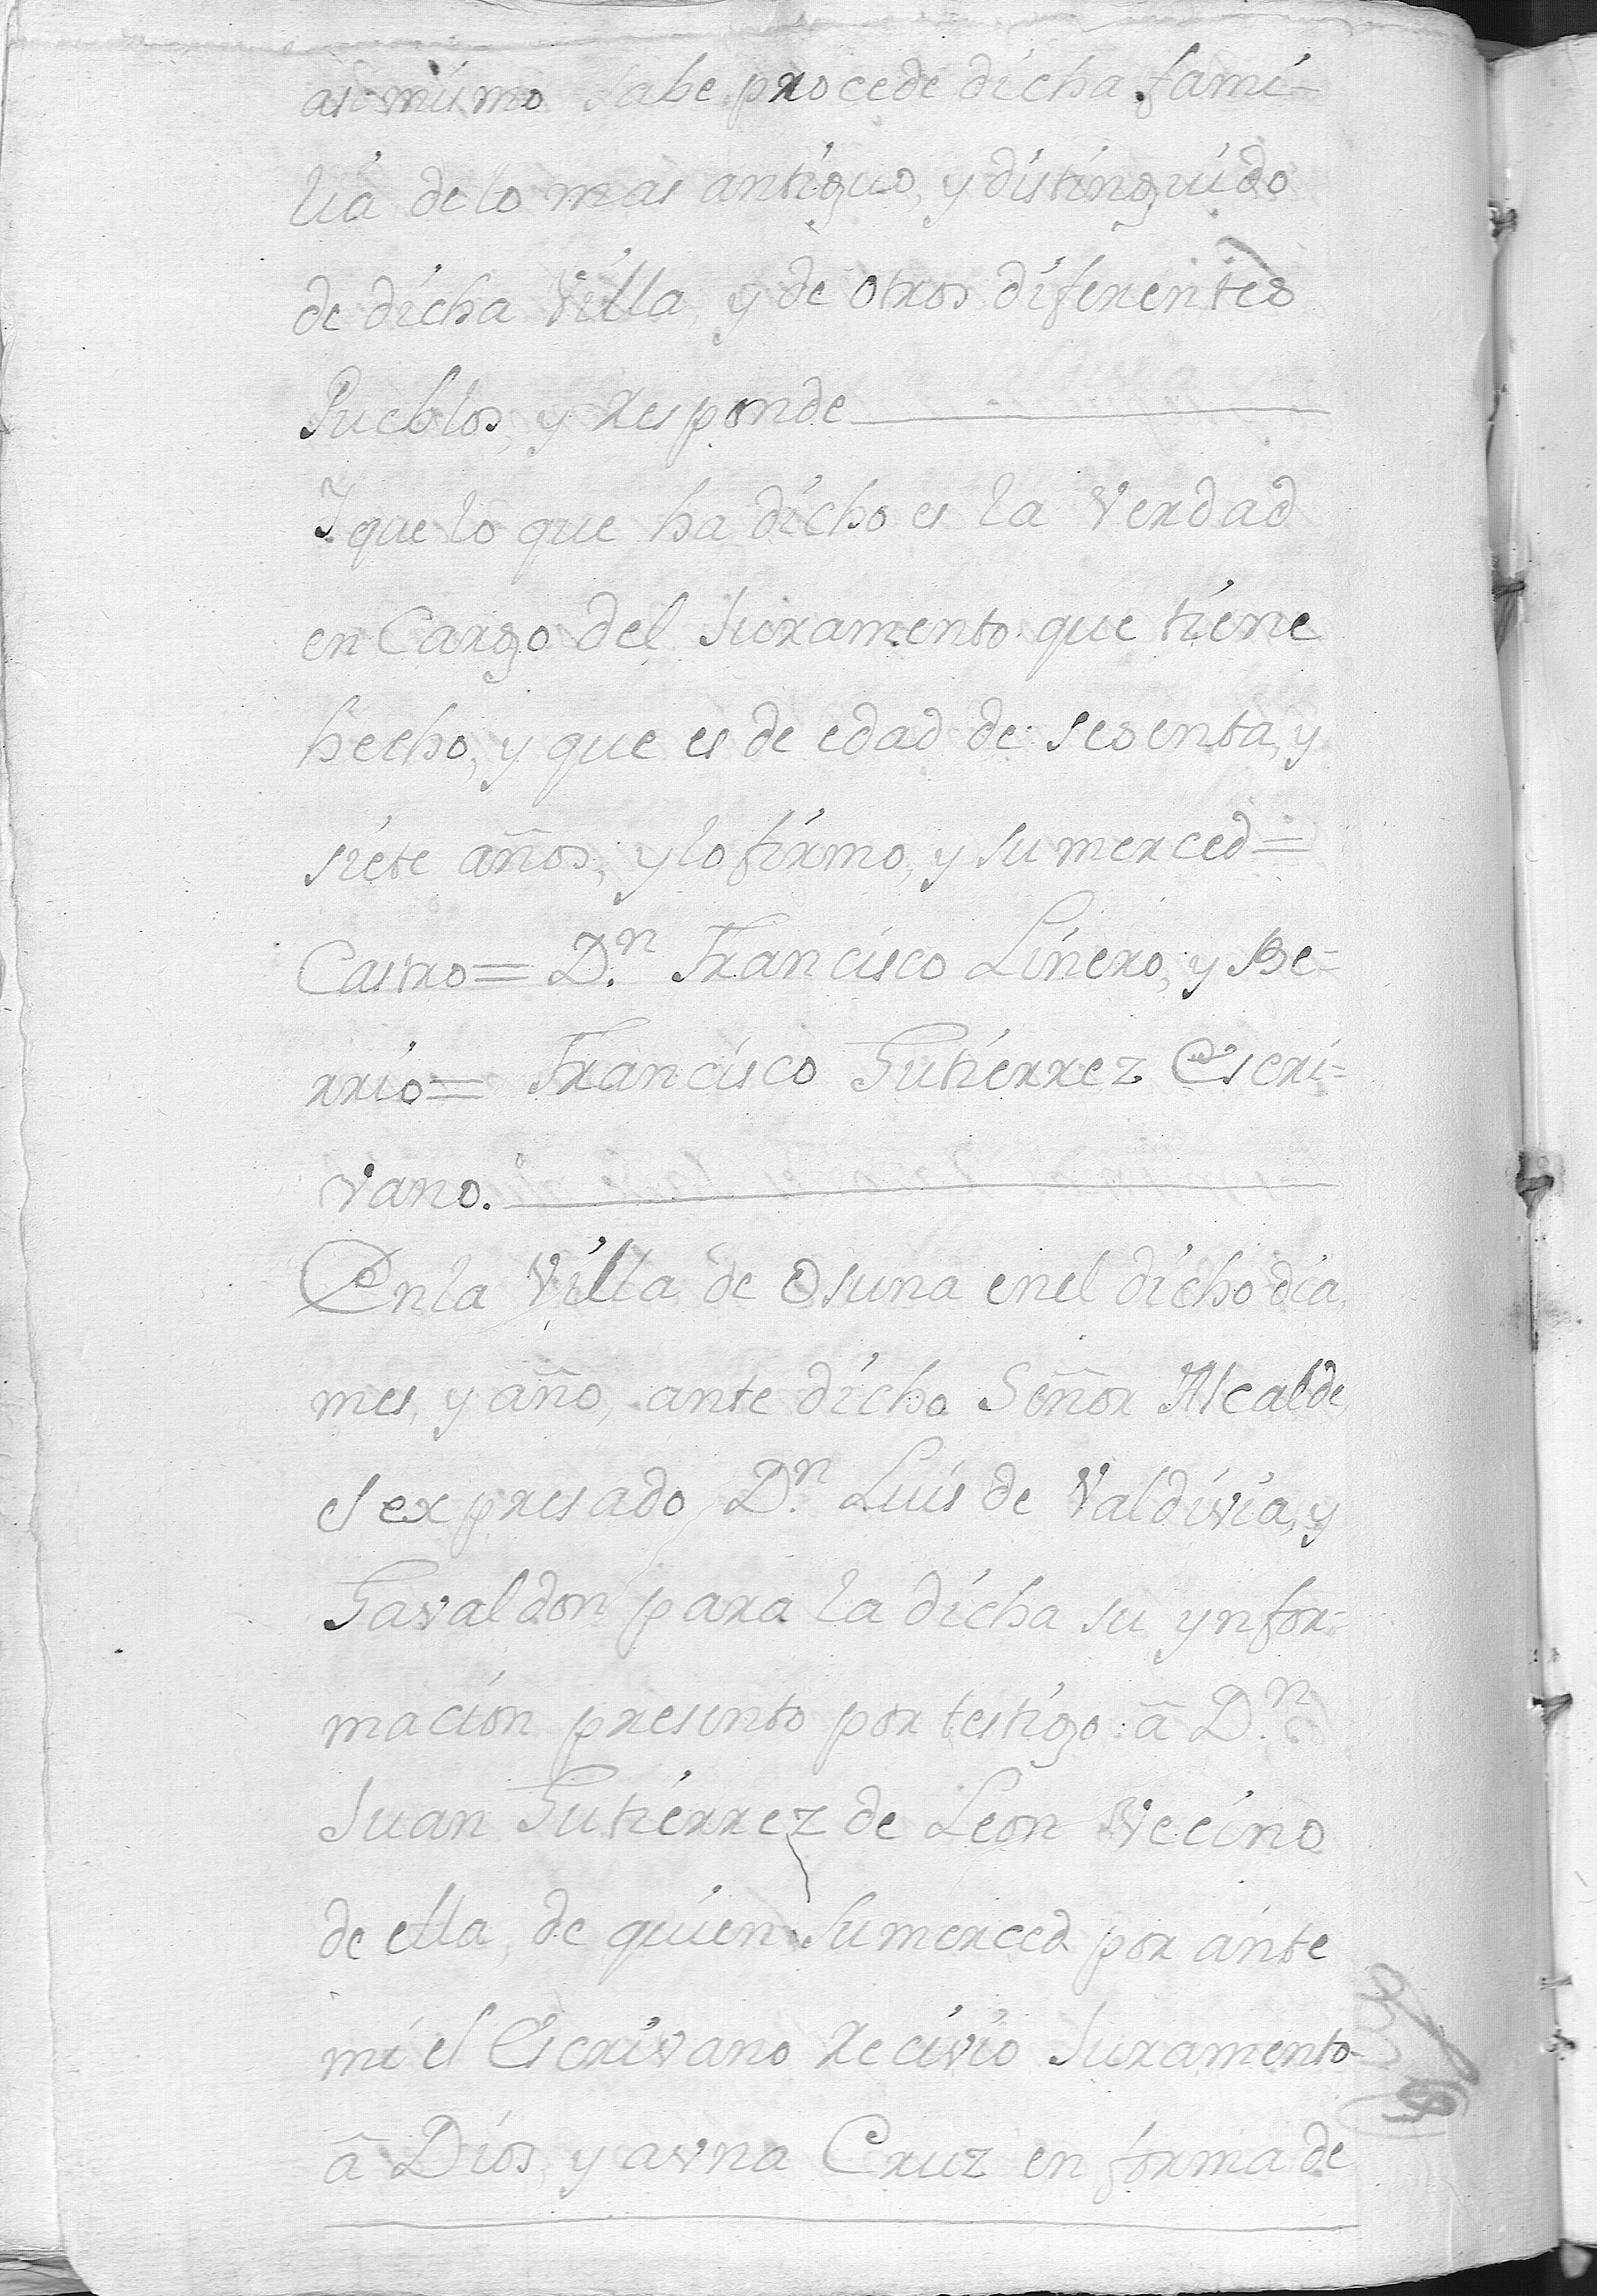 asimismo sabe procede dicha fami-
lia de lo mas antiguo, y distinguido
de dicha Villa, y de otros diferentes
Pueblos, y responde
Y que lo que ha dicho es la verdad
en Cargo del Juramento que tiene
hecho, y que es de edad de sesenta, y
siete años, y lo firmo, y su merced=
Castro= D.n Francisco Linero, y Be=
rrio= Francisco Gutierrez Escri=
vano.
En la Villa de Osuna en el dicho dia,
mes, y año, ante dicho Señor Alcalde
el expresado D.n Luis de Valdivia, y
Gavaldon para la dicha su ynfor=
macion presento por testigo a D.n
Juan Gutierrez de Leon Vecino
de ella, de quien su merced por ante
mi el Escrivano Recivio Juramento
a Dios, y a vna Cruz en forma de